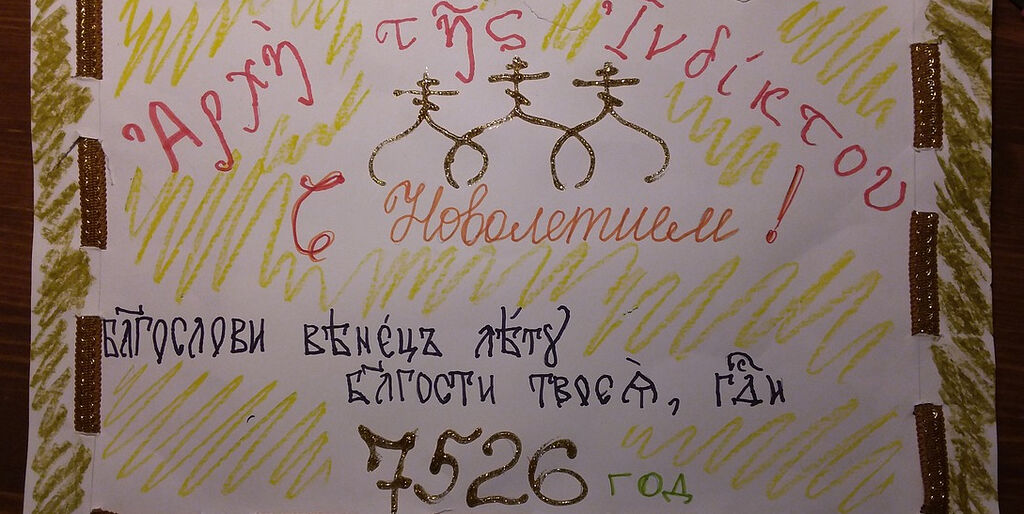 Ἀρχὴ τῆς Ἰνδίκτου
С Новолетием!
бл҃гослови вѣне́цъ лѣ́тꙋ
бл҃гости твоеѧ̀, гдⷭ҇и
7526 год